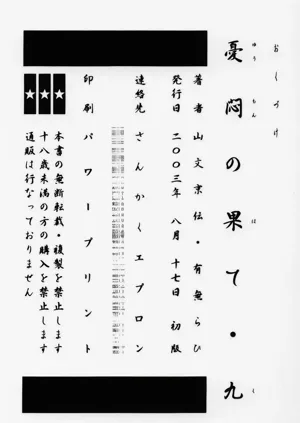 おしづけ
憂悶の果て・九
ゆうもん は く
著者 山文京伝・有無らひ
発行日 二〇〇三年 八月 十七日 初版
連絡先 さんかくエプロン
印刷 パワープリント
本書の無断転載・複製を禁止します
十八歳未満の方の購入を禁止します
通販は行なっておりません